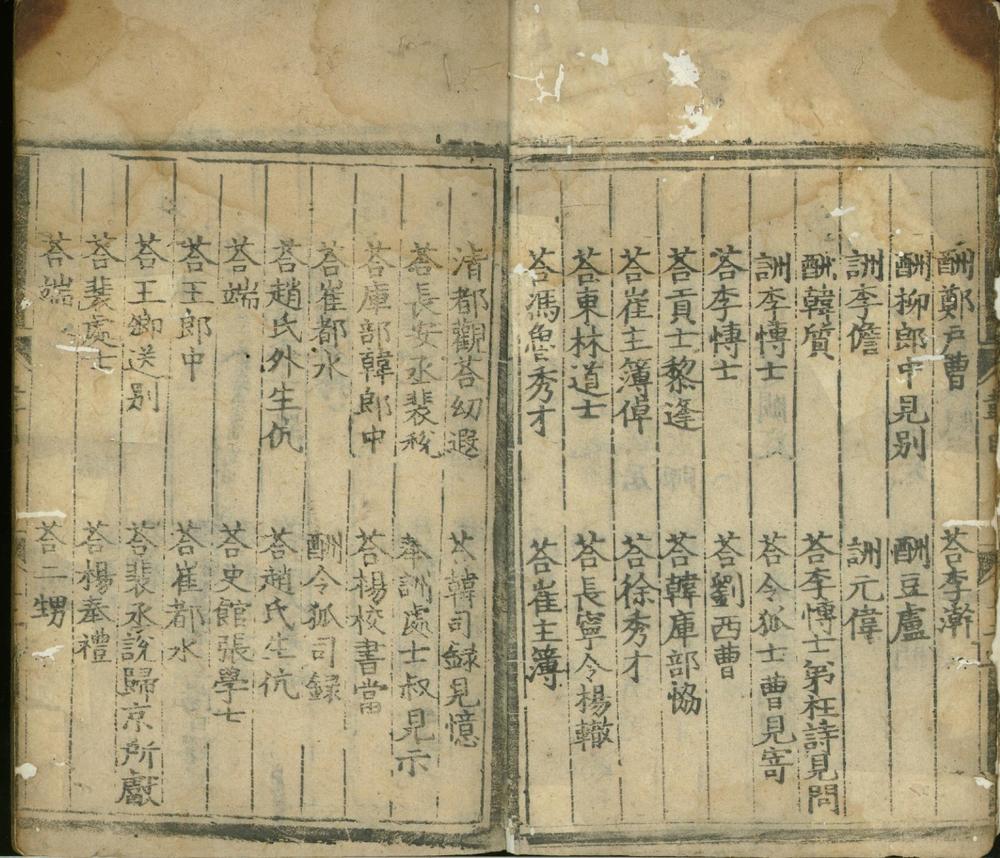 酬鄭戶曹 荅李澣
酬柳郎中見別 酬豆盧
詶李儋 詶元偉
酬韓質 荅李愽士弟枉詩見問
詶李愽士 荅令狐士曹見寄
荅李愽士 荅劉西曹
荅貢士黎逢 荅韓庫部恊
荅崔主簿倬 荅徐秀才
荅東林道士 荅長寧令楊轍
荅馮魯秀才 荅崔主簿
清都觀荅幼遐 荅韓司錄見憶
荅長安丞裴稅 奉詶處士叔見示
荅庫部韓郎中 荅楊校書當
荅崔都水 酬令狐司錄
荅趙氏外生伉 荅趙氏生伉
荅端 荅史館張學士
荅王郎中 荅崔都水
荅王卿送别 荅裴丞說歸京所獻
荅裴處士 荅楊奉禮
荅端 荅二甥